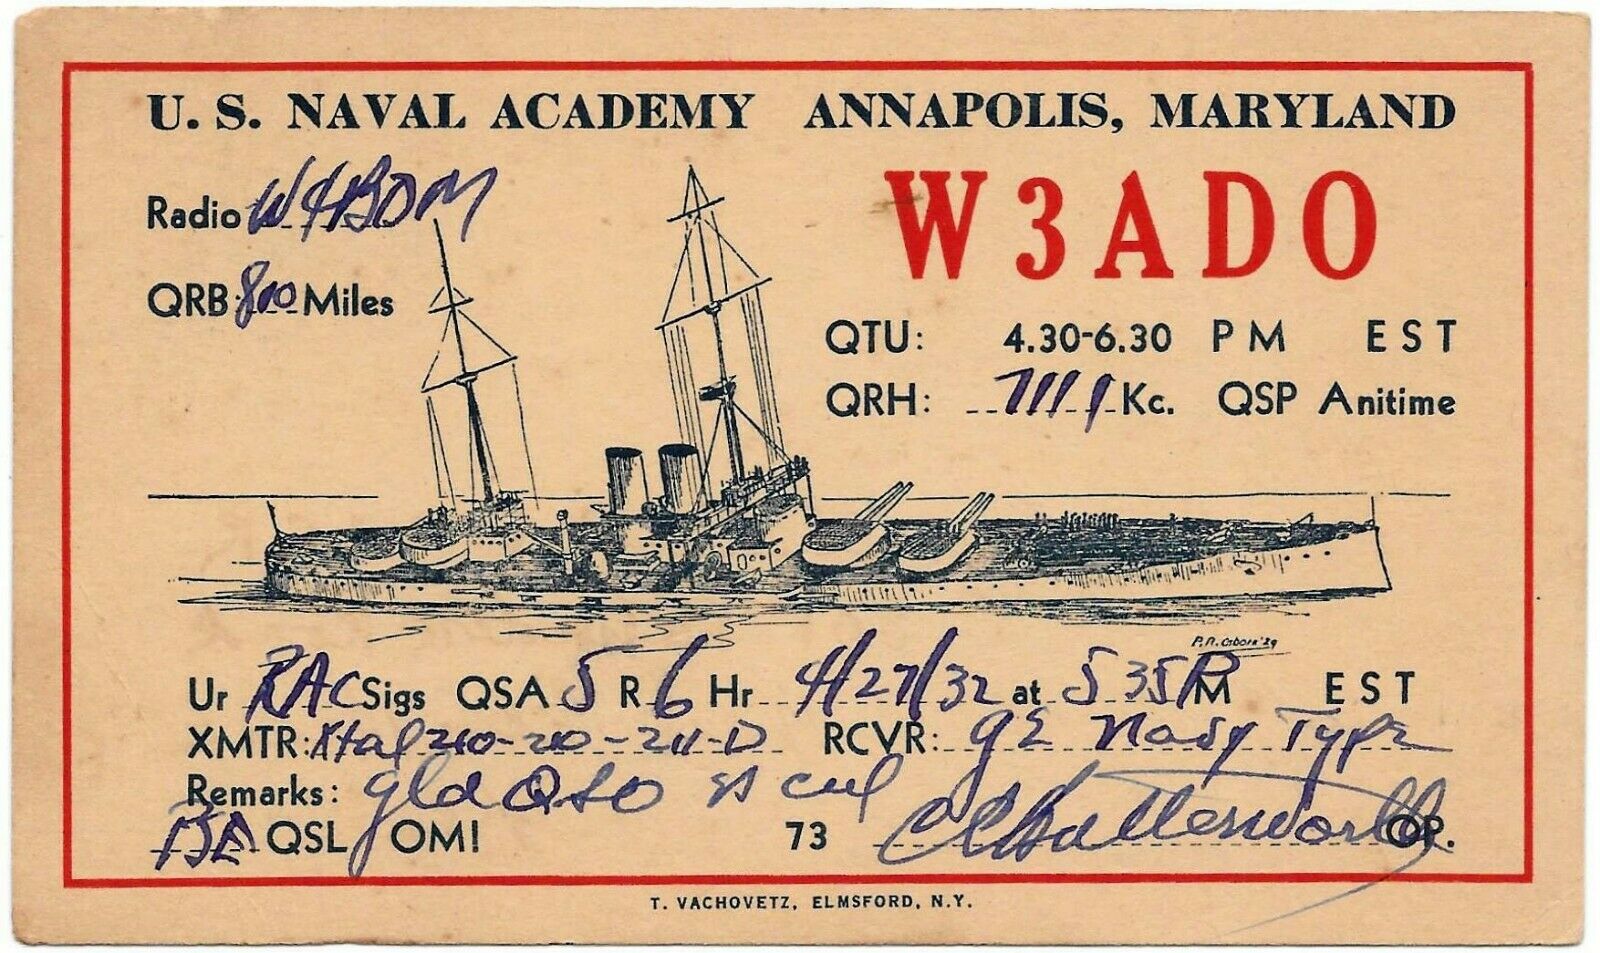 U. S. NAVAL ACADEMY ANNAPOLIS, MARYLAND
Radio W4BDM
W3ADO
QRB 800 Miles
QTU: 4.30-6.30 PM EST
QRH: 7111 Kc. QSP Anitime
P.R. Osborn '29
Ur RAC Sigs QSA 5 R 6 Hr 4/27/32 at 5 35 PM EST
XMTR: Xtal 210-210-211-D RCVR: Navy Type
Remarks: gld QSO es cul
PSE QSL OM! 73 Butterworth OP.
T. VACHOVETZ, ELMSFORD, N.Y.